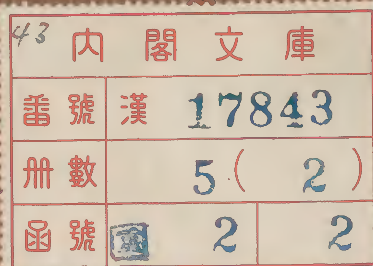 43 内閣文庫
番號 漢 17843
冊數 5 ( 2 )
函號 2 2